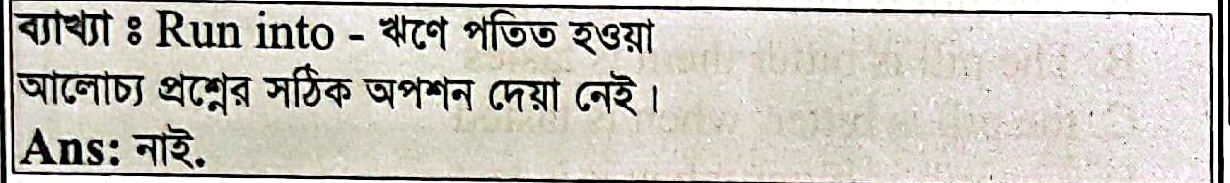 ব্যাখ্যা ঃ Run into - ঋণে পতিত হওয়া
আলোচ্য প্রশ্নের সঠিক অপশন দেয়া নেই।
Ans: নাই.